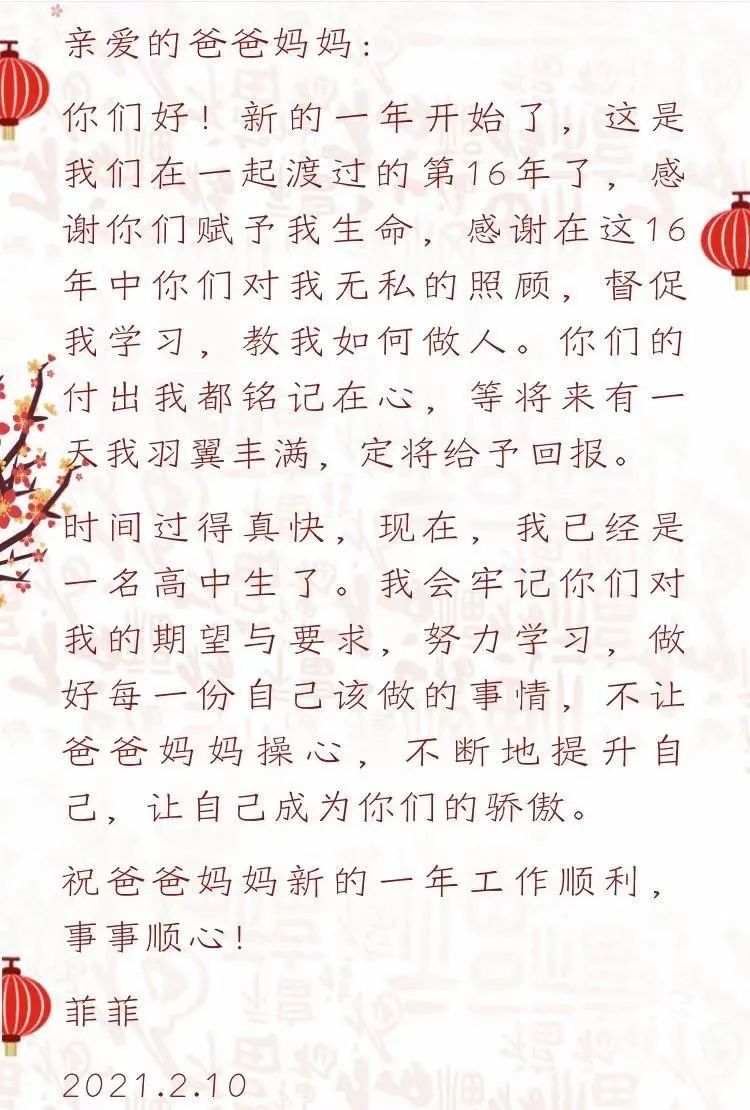 亲爱的爸爸妈妈：
你们好！新的一年开始了，这是
我们在一起渡过的第16年了，感
谢你们赋予我生命，感谢在这16
年中你们对我无私的照顾，督促
我学习，教我如何做人。你们的
付出我都铭记在心，等将来有一
天我羽翼丰满，定将给予回报。
时间过得真快，现在，我已经是
一名高中生了。我会牢记你们对
我的期望与要求，努力学习，做
好每一份自己该做的事情，不让
爸爸妈妈操心，不断地提升自
己，让自己成为你们的骄傲。
祝爸爸妈妈新的一年工作顺利，
事事顺心！
菲菲
2021.2.10